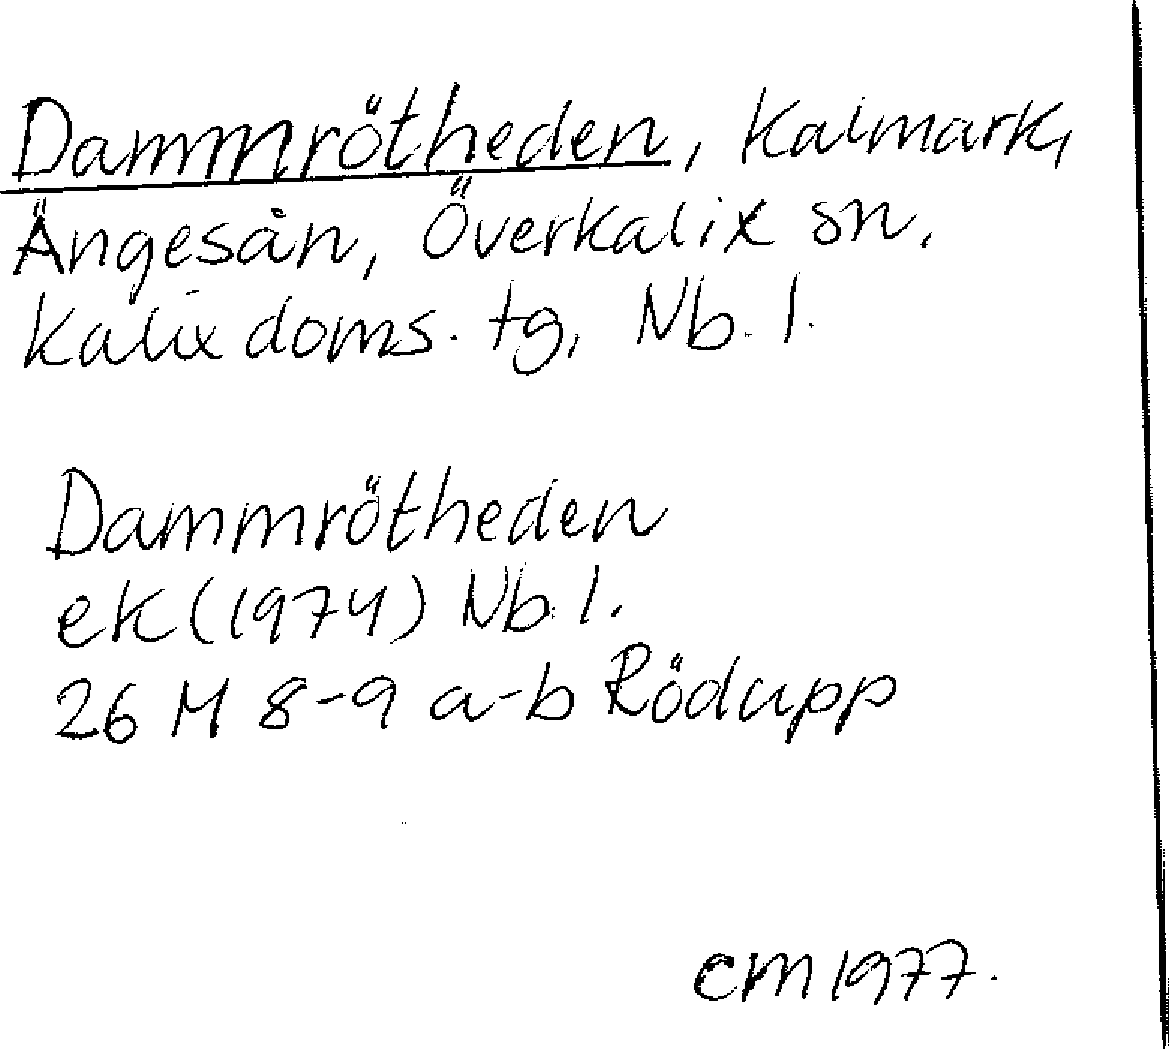 Dammrötheden, kalmark,
Ängesån, Överkalix sn,
Kalix doms. tg, Nb. l.
Dammrötheden
ek (1974) Nb. l.
26 M 8-9 a-b Rödupp
CM 1977.